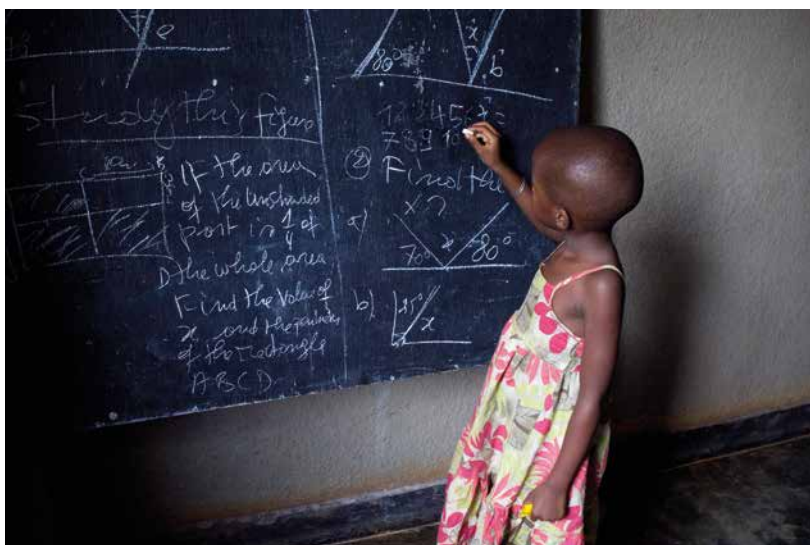 e
Study this figure
If the area
of the unshaded
part is 1/4 of
D the whole area
Find the value of
x and the
of the rectangle
ABCD
80°
x
b
123456
789 10
② Find the
x?
a)
70° x 80°
b)
x